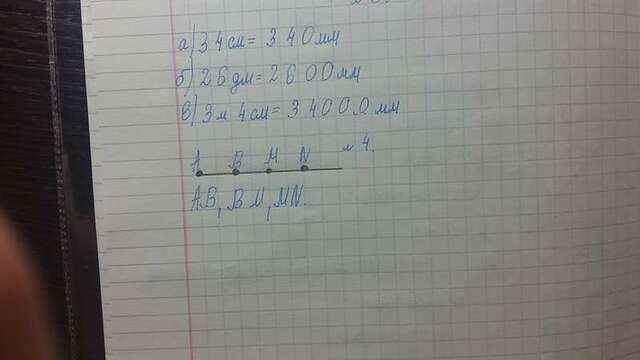 а) 34см = 340мм
б) 26дм = 2600мм
в) 3м 4см = 34000мм
N 4.
A B M N
AB, BM, MN.